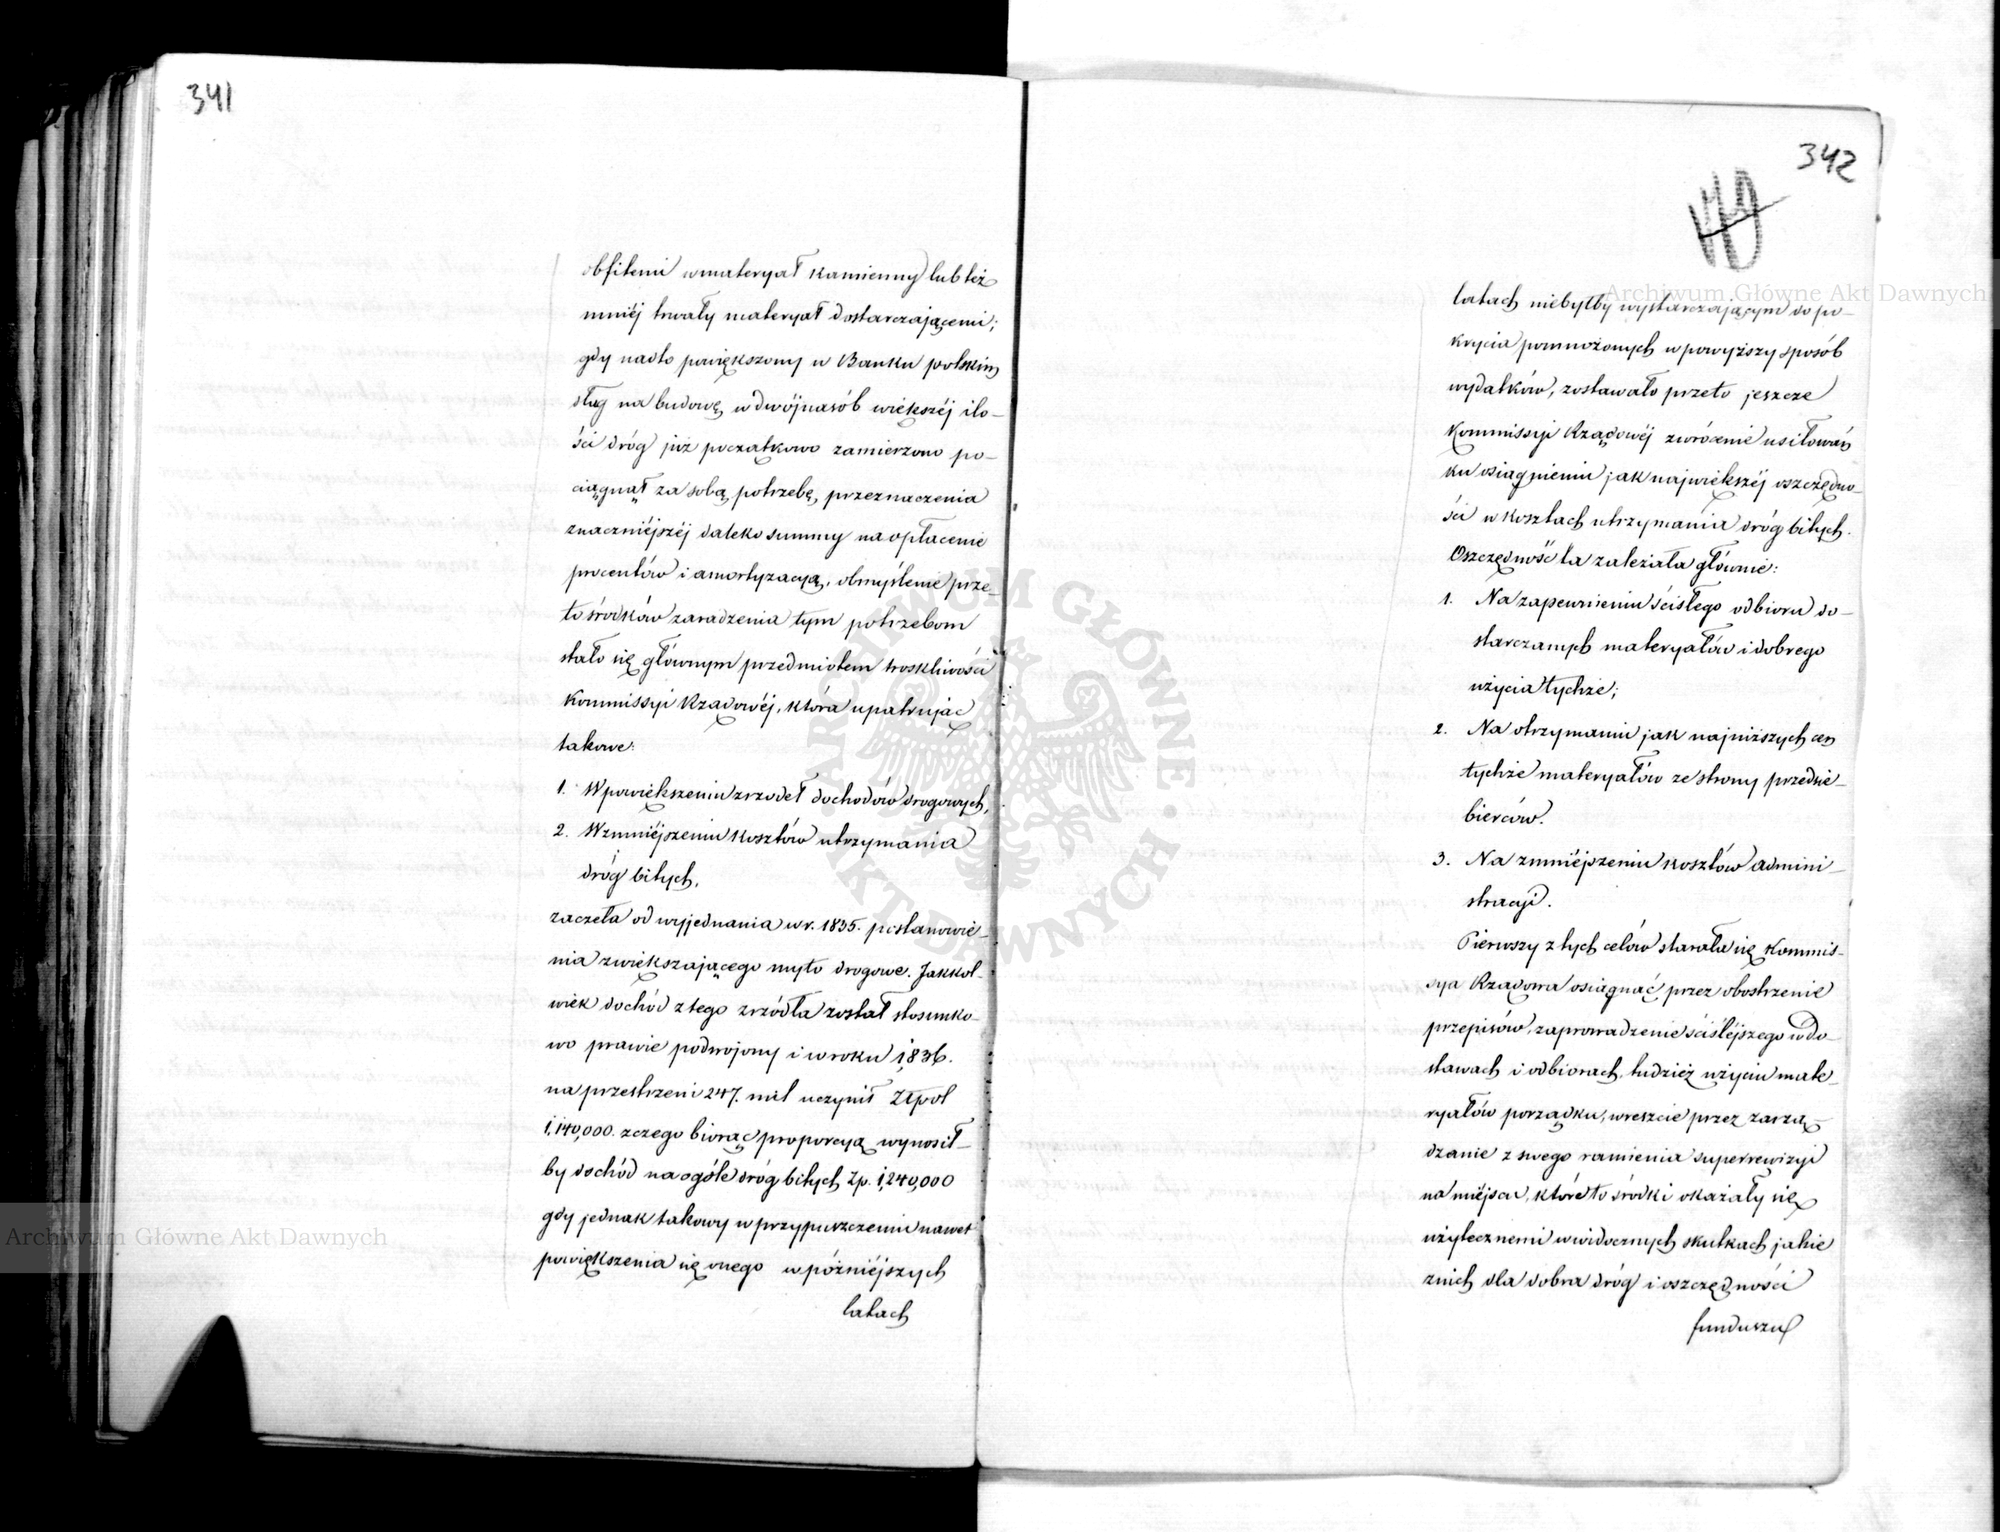 341
obfitemi w materyał kamienny lub też
mniéj trwały materyał dostarczającemi;
gdy nadto powiększony w Banku polskim
dług na budowę w dwójnasób większéj ilo-
ści dróg już początkowo zamierzono po-
ciągnął za sobą potrzebę, przeznaczenia
znaczniéjszéj daleko summy na opłacenie
procentów i amortyzacyą, obmyślenie prze-
to środków zaradzenia tym potrzebom
stało się głównym przedmiotem troskliwości
Kommissyi Rządowéj, która upatrując
takowe:
1. W powiększeniu zrzódeł dochodów drogowych,
2. W zmniéjszeniu kosztów utrzymania
dróg bitych,
zaczęła od wyjednania w r. 1835. postanowie-
nia zwiększającego myto drogowe. Jakkol-
wiek dochód z tego zrzódła został stosunko-
wo prawie podwojony i w roku 1836.
na przestrzeni 247. mil uczynił Złpol
1,140,000. z czego biorąc proporcyą wynosił-
by dochód na ogóle dróg bitych Zp. 1,240,000
gdy jednak takowy w przypuszczeniu nawet
powiększenia się onego w późniéjszych
latach
342
latach niebyłby wystarczającym do po-
krycia pomnożonych w powyższy sposób
wydatków, zostawało przeto jeszcze
Kommissyi Rządowéj zwrócenie usiłowań
ku osiągnieniu jak największéj oszczędno-
ści w kosztach utrzymania dróg bitych.
Oszczędność ta zależała głównie:
1. Na zapewnieniu ścisłego odbioru do-
starczanych materyałów i dobrego
użycia tychże;
2. Na otrzymaniu jak najniższych cen
tychże materyałów ze strony przedsie-
bierców.
3. Na zmniéjszeniu kosztów admini-
stracyi.
Pierwszy z tych celów starała się Kommis-
sya Rządowa osiągnąć przez obostrzenie
przepisów, zaprowadzenie ściśléjszego w do-
stawach i odbiorach, tudzież użyciu mate-
ryałów porządku, wreszcie przez zarzą-
dzanie z swego ramienia superrewizyi
na miéjscu, któré to środki okazały się
użytecznemi w widocznych skutkach jakie
z nich dla dobra dróg i oszczędności
funduszu
Archiwum Główne Akt Dawnych
Archiwum Główne Akt Dawnych
ARCHIWUM GŁÓWNE AKT DAWNYCH